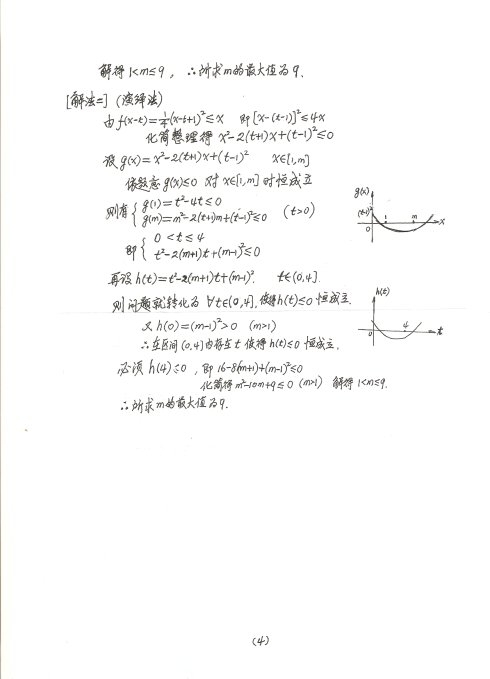 解得 1<m≤9, ∴所求m的最大值为9.
[解法二] (演绎法)
由 f(x-t)=¼(x-t+1)²≤x 即[x-(t-1)]²≤4x
化简整理得 x²-2(t+1)x+(t-1)²≤0
设 g(x)=x²-2(t+1)x+(t-1)² x∈[1,m]
依题意 g(x)≤0 对 x∈[1,m]时恒成立
则有 { g(1)=t²-4t≤0
g(m)=m²-2(t+1)m+(t-1)²≤0 (t>0)
g(x)
(t-1)²
1
m
0
x
即 { 0<t≤4
t²-2(m+1)t+(m-1)²≤0
再设 h(t)=t²-2(m+1)t+(m-1)². t∈(0,4].
则问题就转化为 ∀t∈(0,4],使得h(t)≤0恒成立.
h(t)
0
4
t
又 h(0)=(m-1)²>0 (m>1)
∴在区间(0,4]内存在t 使得h(t)≤0恒成立.
必须 h(4)≤0, 即 16-8(m+1)+(m-1)²≤0
化简得 m²-10m+9≤0 (m>1) 解得 1<m≤9.
∴所求m的最大值为9.
(4)